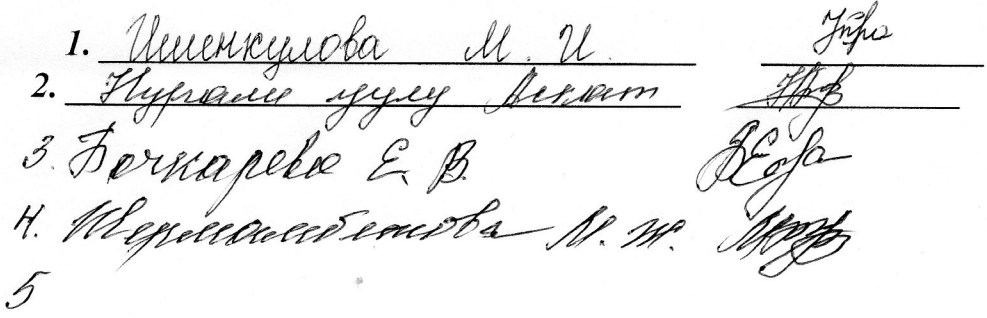 1. Ишенкулова М. И.
2. Нургали уулу Асхат
3. Бочкарева Е. В.
4. Шермамбетова М. Ж.
5